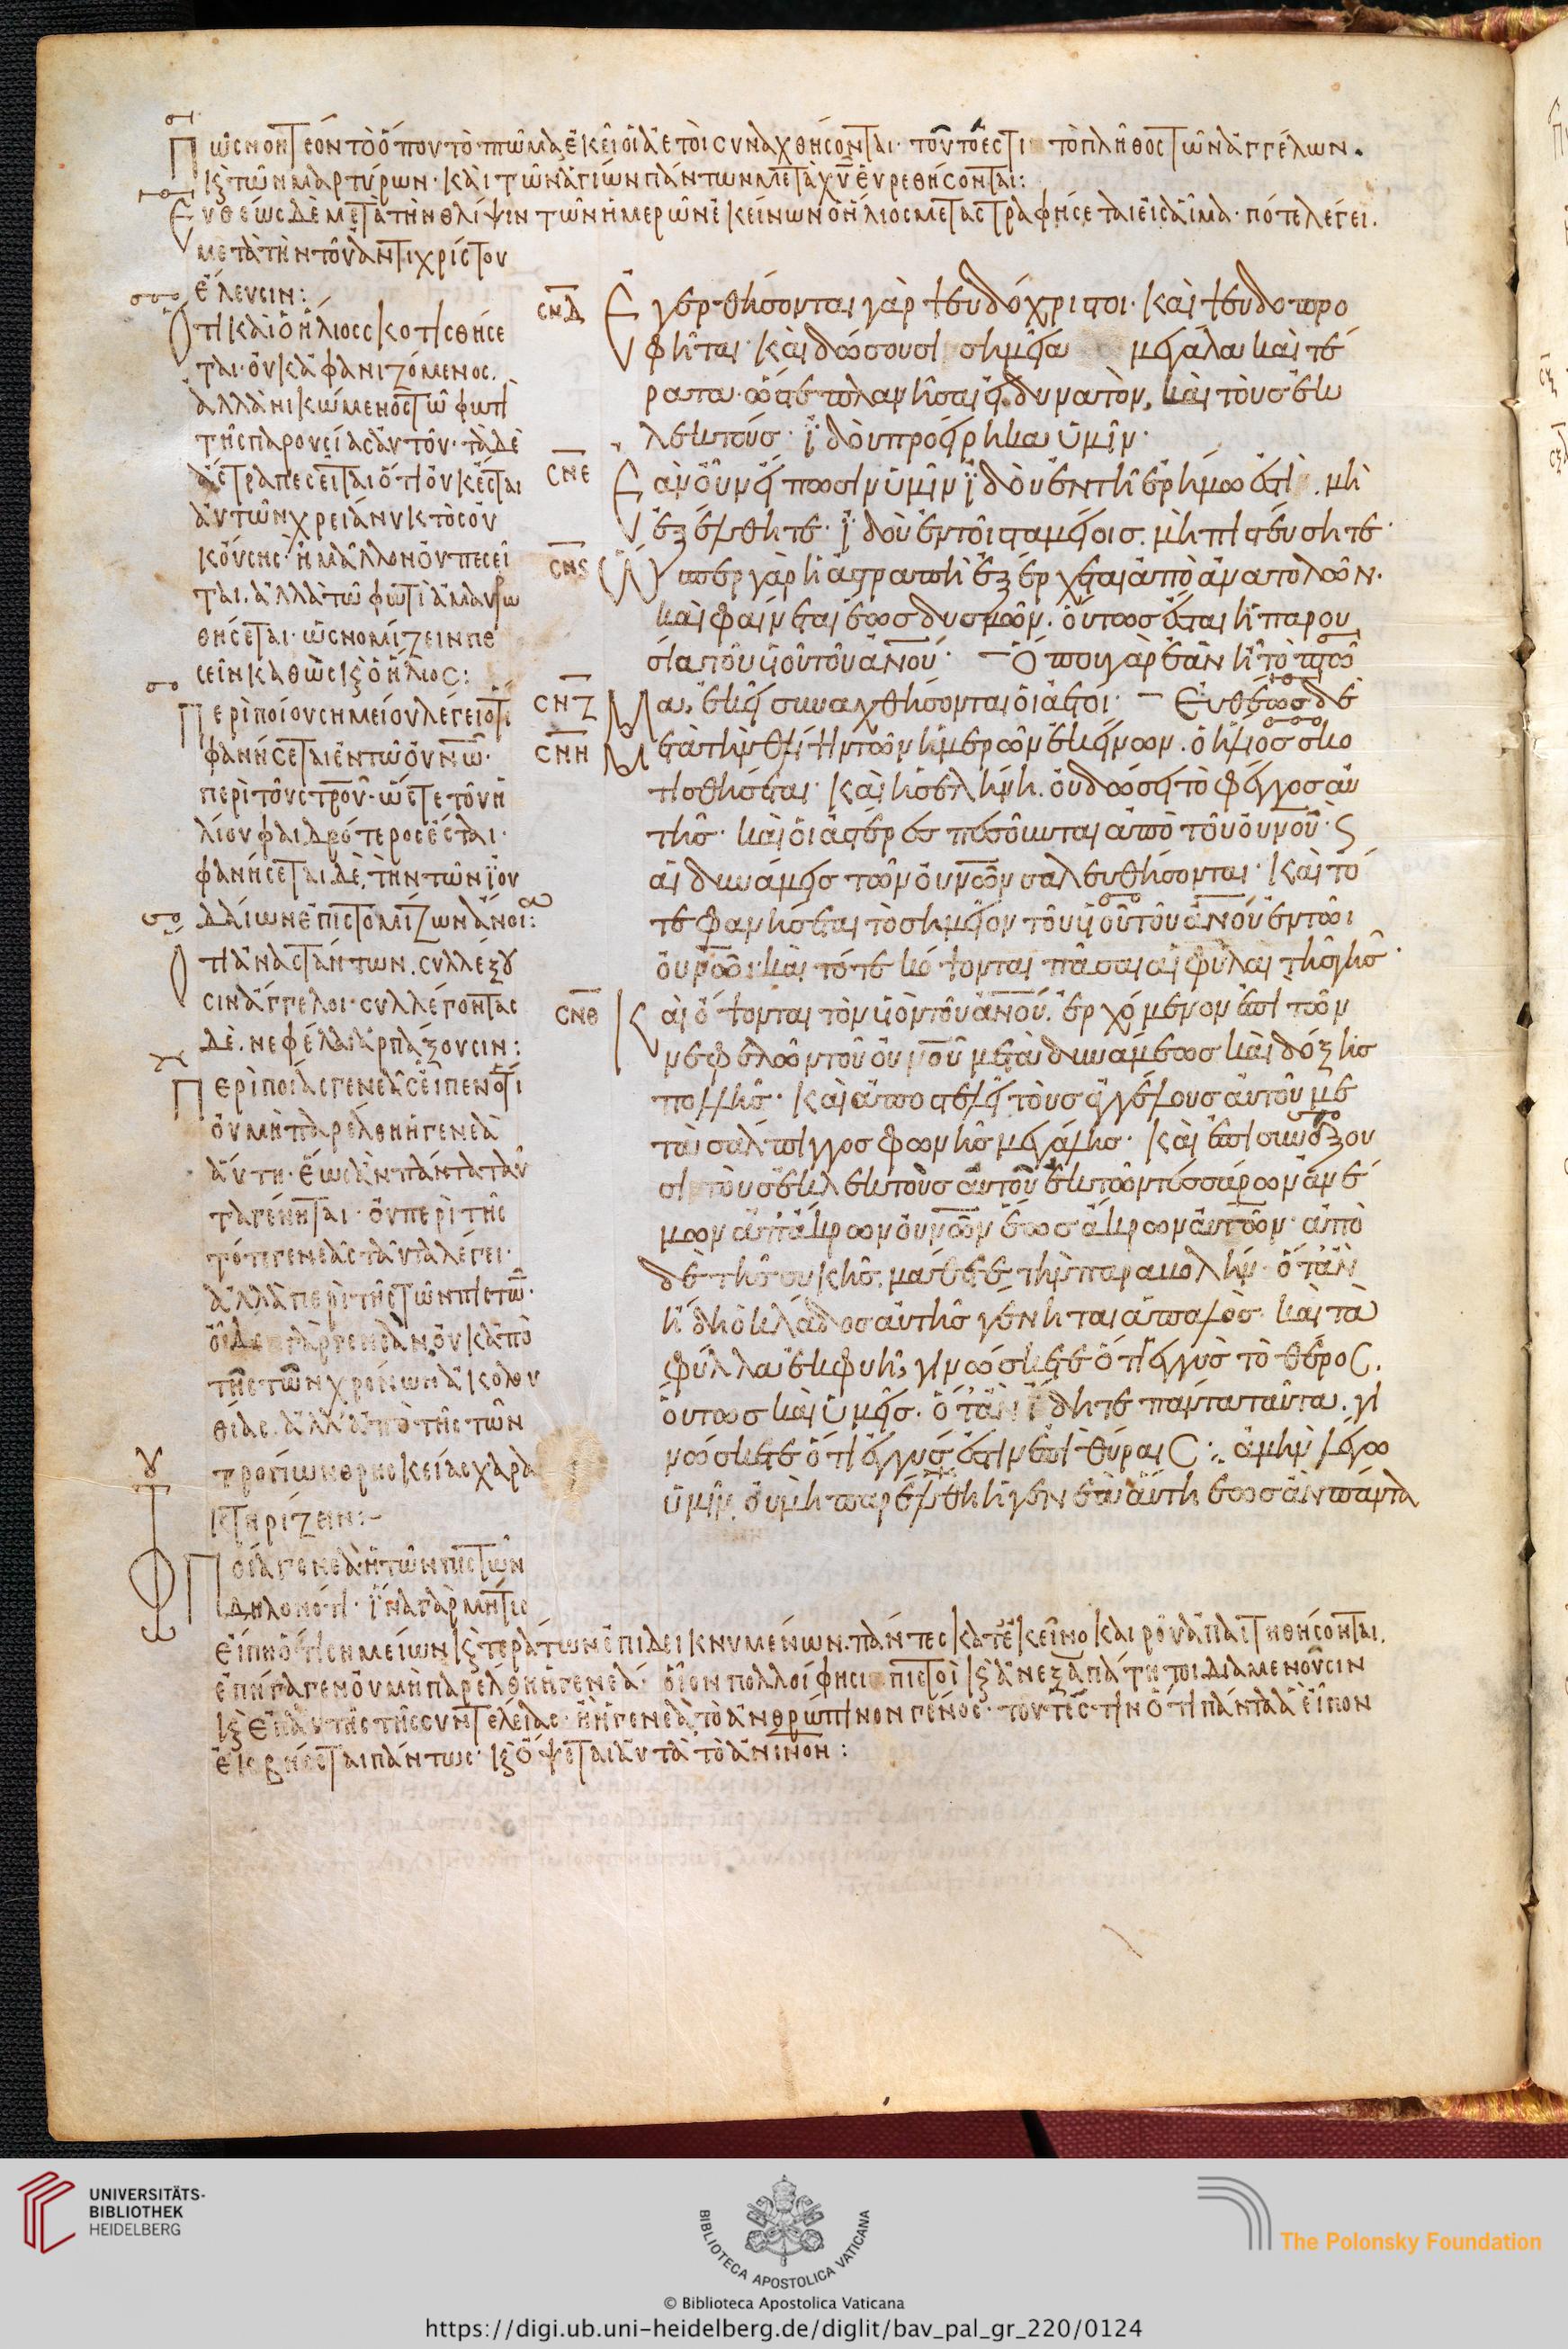 Πῶς νοητέον τὸ ὅπου τὸ πτῶμα ἐκεῖ οἱ ἀετοὶ συναχθήσονται· τοῦτο ἐστὶ τὸ πλῆθος τῶν ἀγγέλων.
κ(αὶ) τῶν μαρτύρων· καὶ τῶν ἁγίων πάντων μετὰ χυ εὑρεθήσονται:
Εὐθέως δὲ μετὰ τὴν θλίψιν τῶν ἡμερῶν ἐκείνων ὁ ἥλιος μεταστραφήσεται εἰς αἷμα· πότε λέγει.
μετὰ τὴν τοῦ ἀντιχρίστου
ἔλευσιν:
Ὅτι καὶ ὁ ἥλιος σκοτισθήσε
ται· οὐκ ἀφανιζόμενος.
ἀλλὰ νικώμενος τῶ φωτὶ
τῆς παρουσίας αὐτοῦ· τὰ δὲ
ἄστρα πεσεῖται ὅτι οὐκ ἔσται
αὐτῶν χρεία νυκτὸς οὐ
κούσης· ἢ μᾶλλον οὐ πεσεῖ
ται. ἀλλὰ τῶ φωτὶ ἀμαυρω
θήσεται· ὡς νομίζειν πε
σεῖν καθὼς κ(αὶ) ὁ ἥλιος:
Περὶ ποίου σημείου λέγει ὅτι
φανήσεται ἐν τῶ οὐνω·
περὶ τοῦ στρου· ὥστε τοῦ ἡ
λίου φαιδρότερος ἔσται·
φανήσεται δὲ, τὴν τῶν ἰου
δαίων ἐπιστομίζων ἄνοι:αν
Ὅτι ἀναστάντων. συλλέξου
σιν ἄγγελοι· συλλέγοντας
δὲ. νεφέλαι ἁρπάξουσιν:
Περὶ ποίας γενεᾶς εἶπεν ὅτι
οὐ μὴ παρέλθη ἡ γενεὰ
αὕτη· ἕως ἂν πάντα ταῦ
τα γένηται· οὐ περὶ τῆς
τότε γενεᾶς ταῦτα λέγει·
ἀλλὰ περὶ τῆς τῶν πιστῶ·
οἶδε γὰρ γενεὰν, οὐκ ἀπὸ
τῆς τῶν χρόνων ἀκολου
θίας. ἀλλ' ἀπὸ τῆς τῶν
τρόπων θρησκείας χαρα
κτηρίζειν:-
Ποία γενεά· ἡ τῶν πιστῶν
δηλονότι· ἵνα γὰρ μήτις
εἴπη ὅτι σημείων κ(αὶ) τεράτων ἐπιδεικνυμένων. πάντες κατ' ἐκεῖνο καιροῦ ἀπατηθήσονται.
ἐπήγαγεν οὐ μὴ παρέλθη ἡ γενεά· οἷον πολλοί φησι πιστοὶ κ(αὶ) ἀνεξαπάτητοι διαμενοῦσιν
κ(αὶ) ἐπ' αὐτῆς τῆς συντελείας· ἢ ἡ γενεὰ, τὸ ἀνθρώπινον γένος· τουτέστιν ὅτι πάντα ἃ εἶπον
ἐκβήσεται πάντως· κ(αὶ) ὄψεται αὐτὰ τὸ ἀνινον:
ϹΝΔ Εγερθήσονται γὰρ ψευδόχριστοι· καὶ ψευδοπρο
φῆται· καὶ δώσουσι σημεῖα μεγάλα καὶ τέ
ρατα· ὥστε πλανῆσαι εἰ δυνατὸν, καὶ τοὺς ἐκ
λεκτούς· ἰδοὺ προείρηκα ὑμῖν·
ϹΝΕ Εὰν οὖν εἴπωσιν ὑμῖν ἰδοὺ ἐν τῆ ἐρήμω ἐστί. μὴ
ἐξέλθητε· ἰδοὺ ἐν τοῖς ταμείοις. μὴ πιστεύσητε·
ϹΝϚ Ὥσπερ γὰρ ἡ ἀστραπὴ ἐξέρχεται ἀπὸ ἀνατολῶν.
καὶ φαίνεται ἕως δυσμῶν. οὕτως ἔσται ἡ παρου
σία τοῦ υἱοῦ τοῦ ανου· Ὅπου γὰρ ἐὰν ἦ τὸ πτῶ
ϹΝΖ Μα, ἐκεῖ συναχθήσονται οἱ ἀετοί· Εὐθέως δὲ
ϹΝΗ Μετὰ τὴν θλίψιν τῶν ἡμερῶν ἐκείνων. ὁ ἥλιος σκο
τισθήσεται· καὶ ἡ σελήνη. οὐ δώσει τὸ φέγγος αὐ
τῆς· καὶ οἱ ἀστέρες πεσοῦνται ἀπὸ τοῦ ουνου· κ(αὶ)
αἱ δυνάμεις τῶν ουνων σαλευθήσονται· καὶ τό
τε φανήσεται τὸ σημεῖον τοῦ υἱοῦ τοῦ ανου ἐν τῶι
ουνω: καὶ τότε κόψονται πᾶσαι αἱ φυλαὶ τῆς γῆς·
ϹΝΘ Καὶ ὄψονται τὸν υἱὸν τοῦ ανου. ἐρχόμενον ἐπὶ τῶν
νεφελῶν τοῦ ουνου μετὰ δυνάμεως καὶ δόξης
πολλῆς· καὶ ἀποστελεῖ τοὺς ἀγγέλους αὐτοῦ με
τὰ σάλπιγγος φωνῆς μεγάλης· καὶ ἐπισυνάξου
σι τοὺς ἐκλεκτοὺς αὐτοῦ ἐκ τῶν τεσσάρων ἀνέ
μων ἀπ' ἄκρων ουνων ἕως ἄκρων αὐτῶν· ἀπὸ
δὲ τῆς συκῆς. μάθετε τὴν παραβολήν· ὅταν
ἤδη ὁ κλάδος αὐτῆς γένηται ἁπαλὸς καὶ τὰ
φύλλα ἐκφυῆ, γινώσκετε ὅτι ἐγγὺς τὸ θέρος.
οὕτως καὶ ὑμεῖς. ὅταν ἴδητε πάντα ταῦτα. γι
νώσκετε ὅτι ἐγγύς ἐστιν ἐπὶ θύραις:. ἀμὴν λέγω
ὑμῖν, οὐ μὴ παρέλθη ἡ γενεὰ αὕτη ἕως ἂν πάντα
UNIVERSITÄTS-
BIBLIOTHEK
HEIDELBERG
BIBLIOTECA APOSTOLICA VATICANA
The Polonsky Foundation
© Biblioteca Apostolica Vaticana
https://digi.ub.uni-heidelberg.de/diglit/bav_pal_gr_220/0124